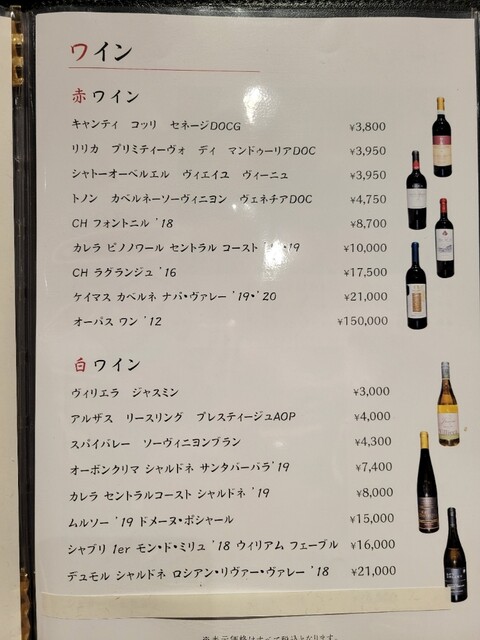 ワイン
赤ワイン
キャンティ コッリ セネージDOCG ¥3,800
リリカ プリミティーヴォ ディ マンドゥーリアDOC ¥3,950
シャトーオーベルエル ヴィエイユ ヴィーニュ ¥3,950
トノン カベルネーソーヴィニヨン ヴェネチアDOC ¥4,750
CH フォントニル '18 ¥8,700
カレラ ピノノワール セントラル コースト '19 ¥10,000
CH ラグランジュ '16 ¥17,500
ケイマス カベルネ ナパ・ヴァレー '19・'20 ¥21,000
オーパス ワン '12 ¥150,000
白ワイン
ヴィリエラ ジャスミン ¥3,000
アルザス リースリング プレスティージュAOP ¥4,000
スパイバレー ソーヴィニヨンブラン ¥4,300
オーボンクリマ シャルドネ サンタバーバラ'19 ¥7,400
カレラ セントラルコースト シャルドネ '19 ¥8,000
ムルソー '19 ドメーヌ・ポシャール ¥15,000
シャブリ 1er モン・ド・ミリュ '18 ウィリアム フェーブル ¥16,000
デュモル シャルドネ ロシアン・リヴァー・ヴァレー '18 ¥21,000
※表示価格はすべて税込となります。